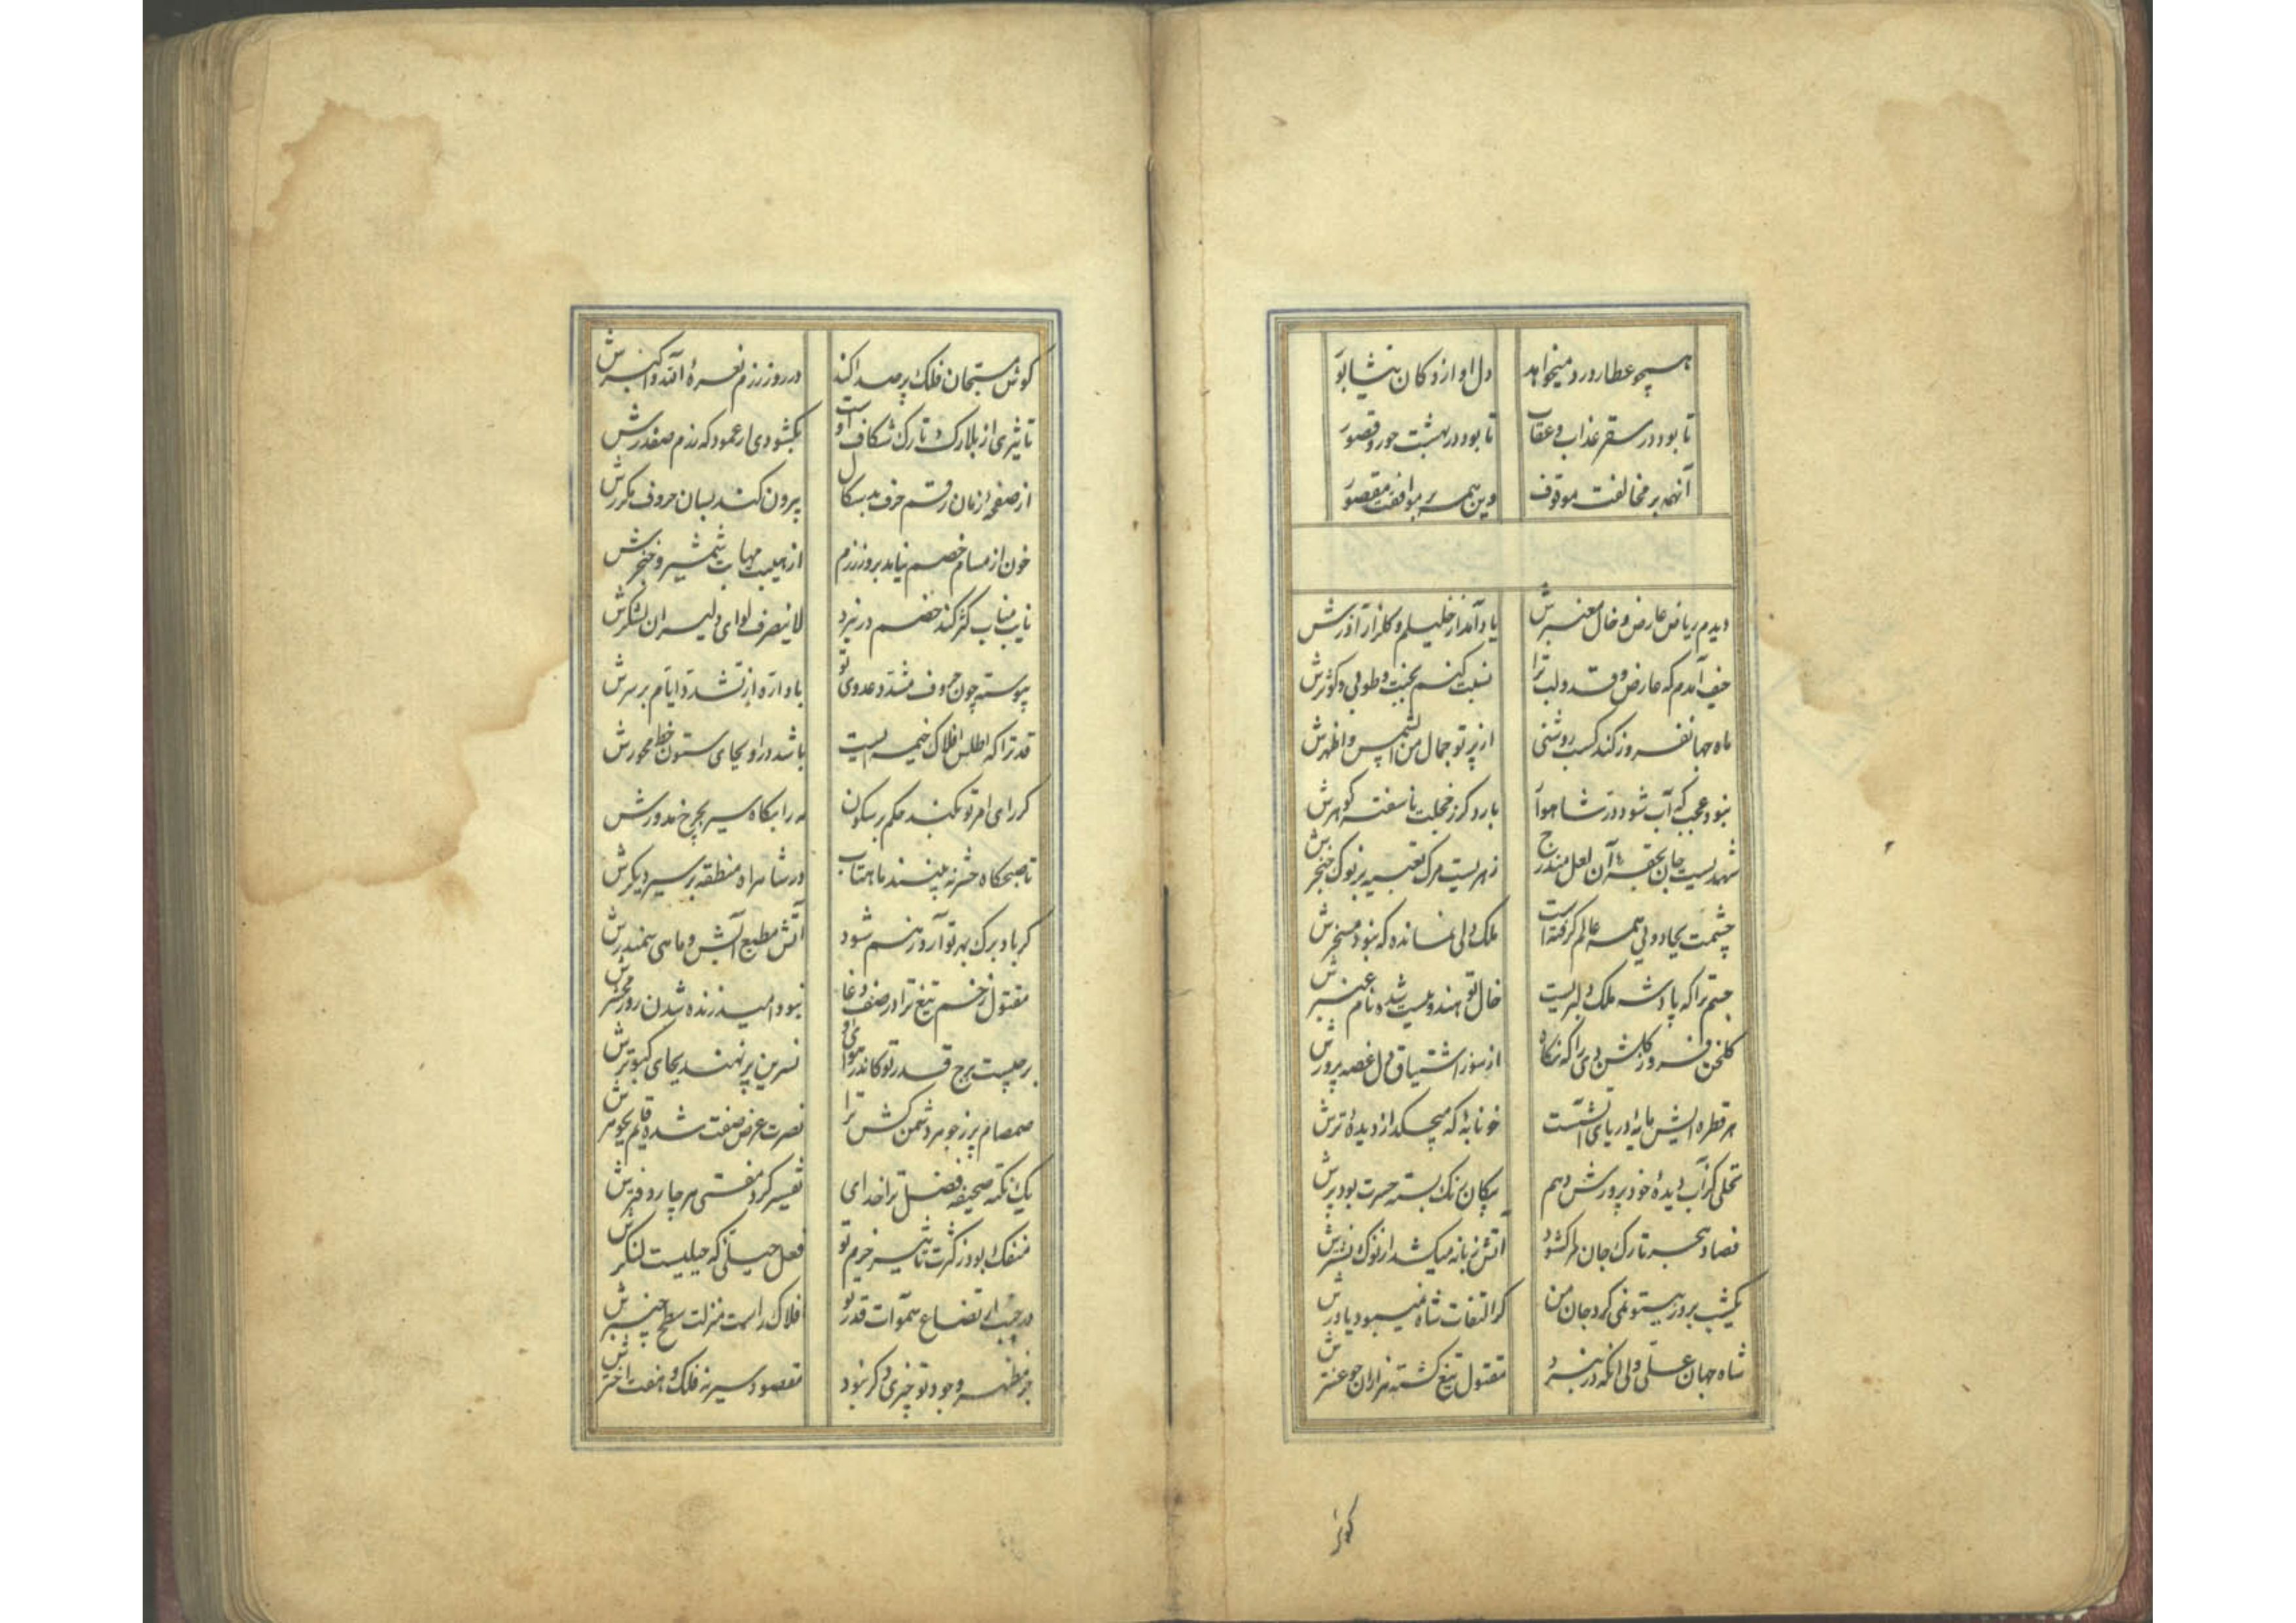 همچو عطار ورد میخواهد دل او از دکان نیشابور
تا بود در سقر عذاب و عقاب تا بود در بهشت حور و قصور
آنهمه بر مخالفت موقوف وین همه بر موافقت مقصور
دیدم ریاض عارض و خال معنبرش یاد آمد از خلیلم و گلزار آذرش
حیف آمدم که عارض و قد و لب ترا نسبت کنم بجنت و طوبی و کوثرش
ماه جهانفروز کند کسب روشنی از پرتو جمال من الشمس واظهرش
نبود عجب که آب شود در شاهوار بارد کز خجلت ناسفته گوهرش
شهدیست جان بحقه آن لعل مندرج زهریست مرک تعبیه بر نوک خنجرش
چشمت بجادویی همه عالم گرفته است ملک دلی نمانده که نبود مسخرش
چشم ترا که پادشه ملک دلبریست خال تو هندویست شده نام عنبرش
گلخن فروز گلشن دی را که نگاه از سوز اشتیاق دل غصه پرورش
هر قطره ایش مایه دریای آتشست خونابه که میچکد از دیده ترش
نخلی کز آب دیده خود پرورش دهم پیکان برنک بسته حسرت بود برش
فصاد هجر تا رک جان مرا گشود آتش زبانه میکشد از نوک نشترش
یکشب بروز بیتو نمی کرد جان من گر التفات شاه نمیبود یاورش
شاه جهان علی ولی آنکه در نبرد مقتول تیغ گشته هزاران چو عنترش
گوش
گوش مسبحان فلک پر صدا کند در روز رزم نعره الله اکبرش
تاثیری از بلارک تارک شکاف اوست بگشودی ار عمود که رزم صفدرش
از صفحه زمان رقم حرف بد سکال بیرون کند بسان حروف مکررش
خون از مسام خصم نیاید بروز رزم از هیبت مهابت شمشیر و خنجرش
نایب مناب کثر کند خصم در نبرد لاینصرف لوای دلیران لشکرش
پیوسته چون حروف مشدد عدوی تو با دا اره از تشدد ایام بر سرش
قدر ترا که اطلس افلاک خیمه ایست باشد در او بجای ستون خط محورش
گر رای امر تو نکند حکم بر سکون مه را بگاه سیر بچرخ مدورش
تا صبحگاه حشر نه بینند ماهتاب در شاهراه منطقه بر سیر دیگرش
گر باد برک بهر تو آرد ز هم شود آتش مطیع آتش و ماهی سمندرش
مقتول زخم تیغ ترا در صف وغا نبود امید زنده شدن روز محشرش
برجیست برج قدر تو کاندر هوای او نسرین پر نهند بجای کبوترش
صمصام پر ز جوهر دشمن کش ترا نصرت عرض صفت شده قایم بجوهرش
یک نکته صحیفه فضل ترا خدای تفسیر کرد مفتی هر چار دفترش
منفک بود ز کثرت تاثیر خرم تو فعل حیاتی که حیلیست لنکرش
در جنب ارتفاع سموات قدر تو افلاک راست منزلت سطح چنبرش
جز مظهر وجود تو چیزی دگر نبود مقصود سیر نه فلک و هفت اخترش